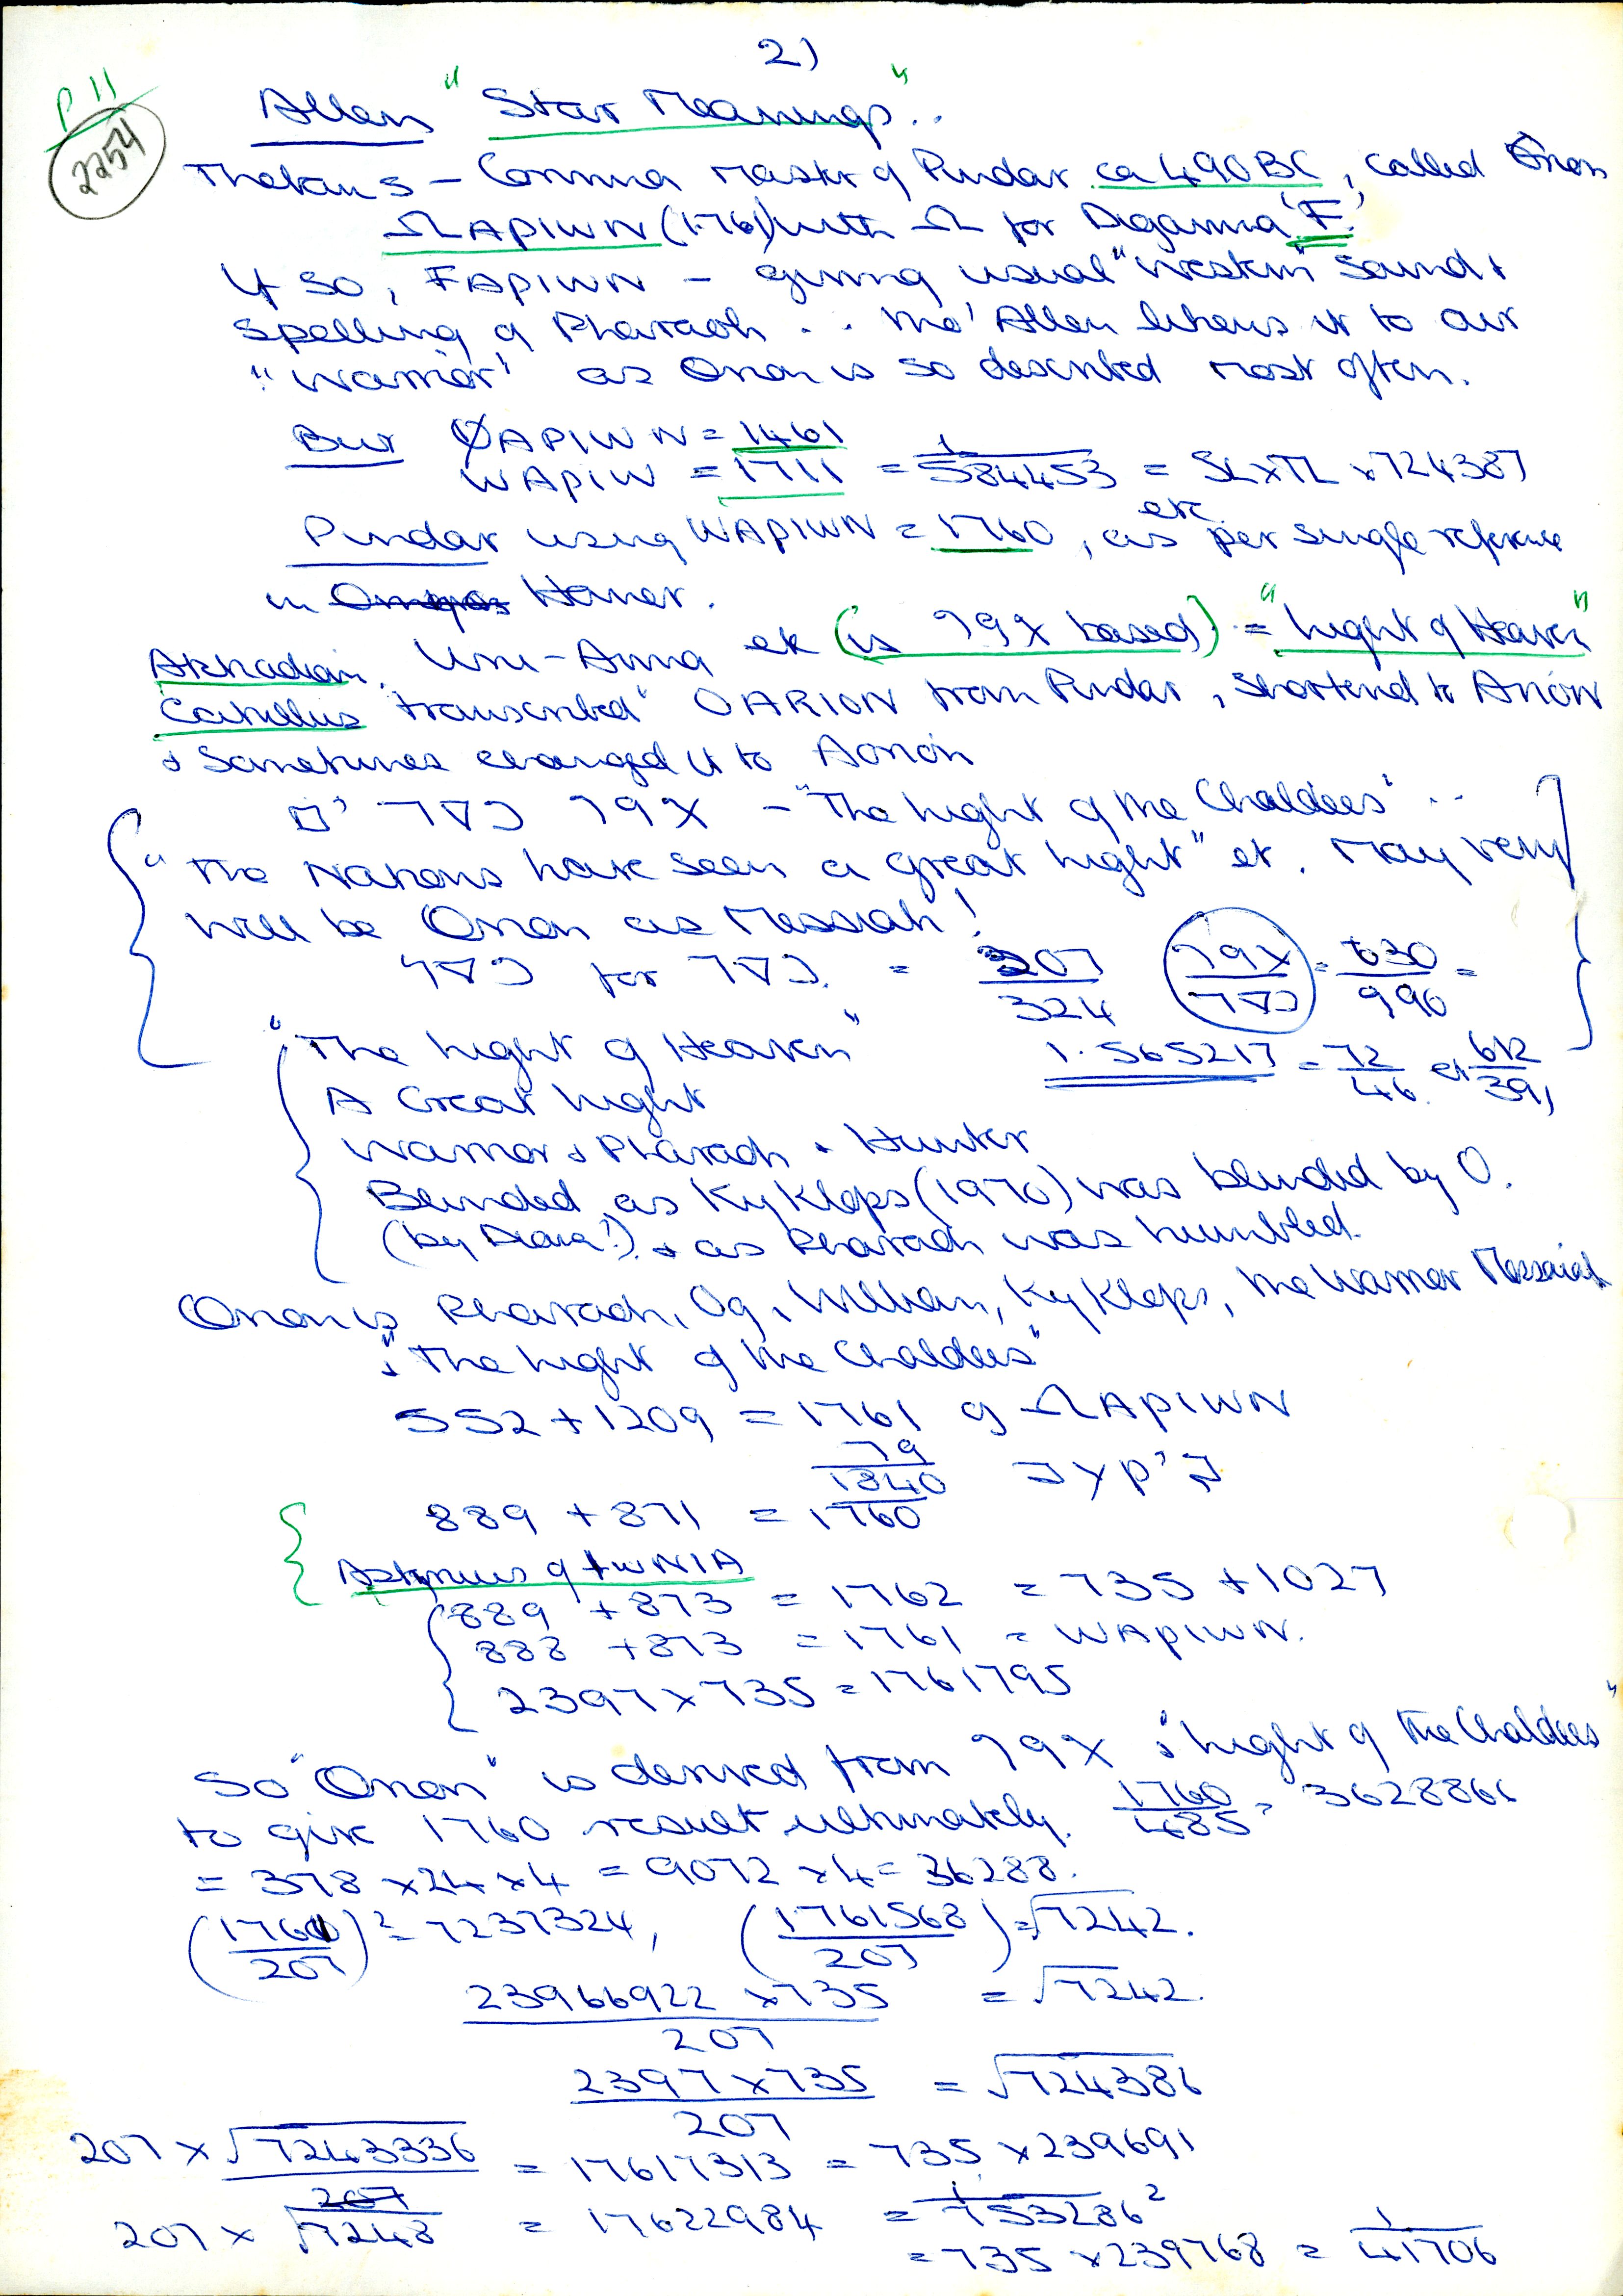 2)
P 11
2254
Allen "Star Meanings"..
Thebans – Corinna master of Pindar ca 490BC, called Orion
ΩAPIWN (1761) with Ω for Digamma 'F'.
If so, FAPIWN – giving usual "Western" sound &
spelling of Pharaoh . . tho' Allen likens it to our
"Warrior" as Orion is so described most often.
But ØAPIWN = 1461
WAPIW = 1711 = 1/584453 = SL x TL x 724387
Pindar using WAPIWN = 1760, etc as per single reference
in Homer.
Akkadian. Uru-Anna etc (is 79X based) = "Light of Heaven"
Catullus "transcribed" OARION from Pindar, shortened to Arion
& sometimes changed it to Aorion
– "The Light of the Chaldees" ..
"The Nations have seen a great Light" et. May very
well be Orion as Messiah!
for = 207/324 = 630/990 =
"The Light of Heaven" 1.565217 = 72/46 et 612/391
A Great Light
Warrior & Pharaoh . Hunter
Blinded as KyKlops (1970) was blinded by O.
(by Diana!) & as Pharaoh was humbled.
Orion is Pharaoh, Og, William, KyKlops, the Warrior Messiah
& "The Light of the Chaldees"
552 + 1209 = 1761 of ΩAPIWN
79/1340
889 + 871 = 1760
889 + 873 = 1762 = 735 + 1027
888 + 873 = 1761 = WAPIWN.
2397 x 735 = 1761795
So "Orion" is derived from 79X & "Light of the Chaldees"
to give 1760 result ultimately. 1760/485 = 3628866
= 378 x 24 x 4 = 9072 x 4 = 36288.
(1761/207)² = 7237324, (1761568/207) = √7242.
23966922 x 735/207 = √7242.
2397 x 735/207 = √724386
207 x √7243336 = 17617313 = 735 x 239691
207 x √7248 = 17622984 = 1/753286²
= 735 x 239768 = 1/41706